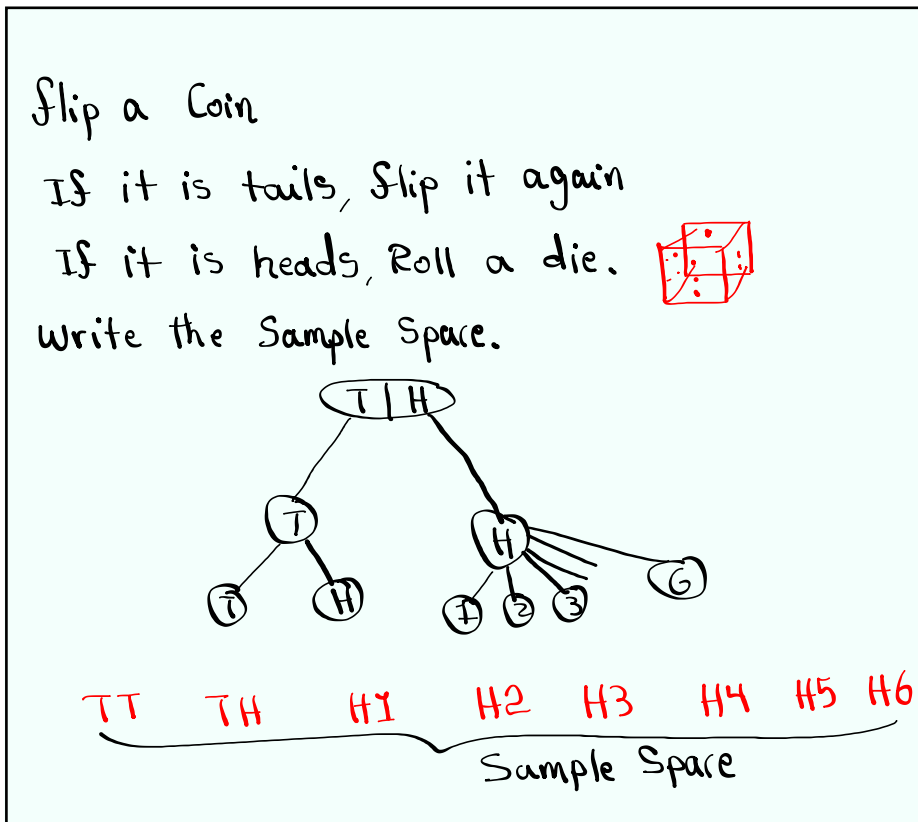 flip a Coin
If it is tails, flip it again
If it is heads, Roll a die.
Write the Sample Space.
T | H
T H
T H 1 2 3 6
TT TH H1 H2 H3 H4 H5 H6
Sample Space